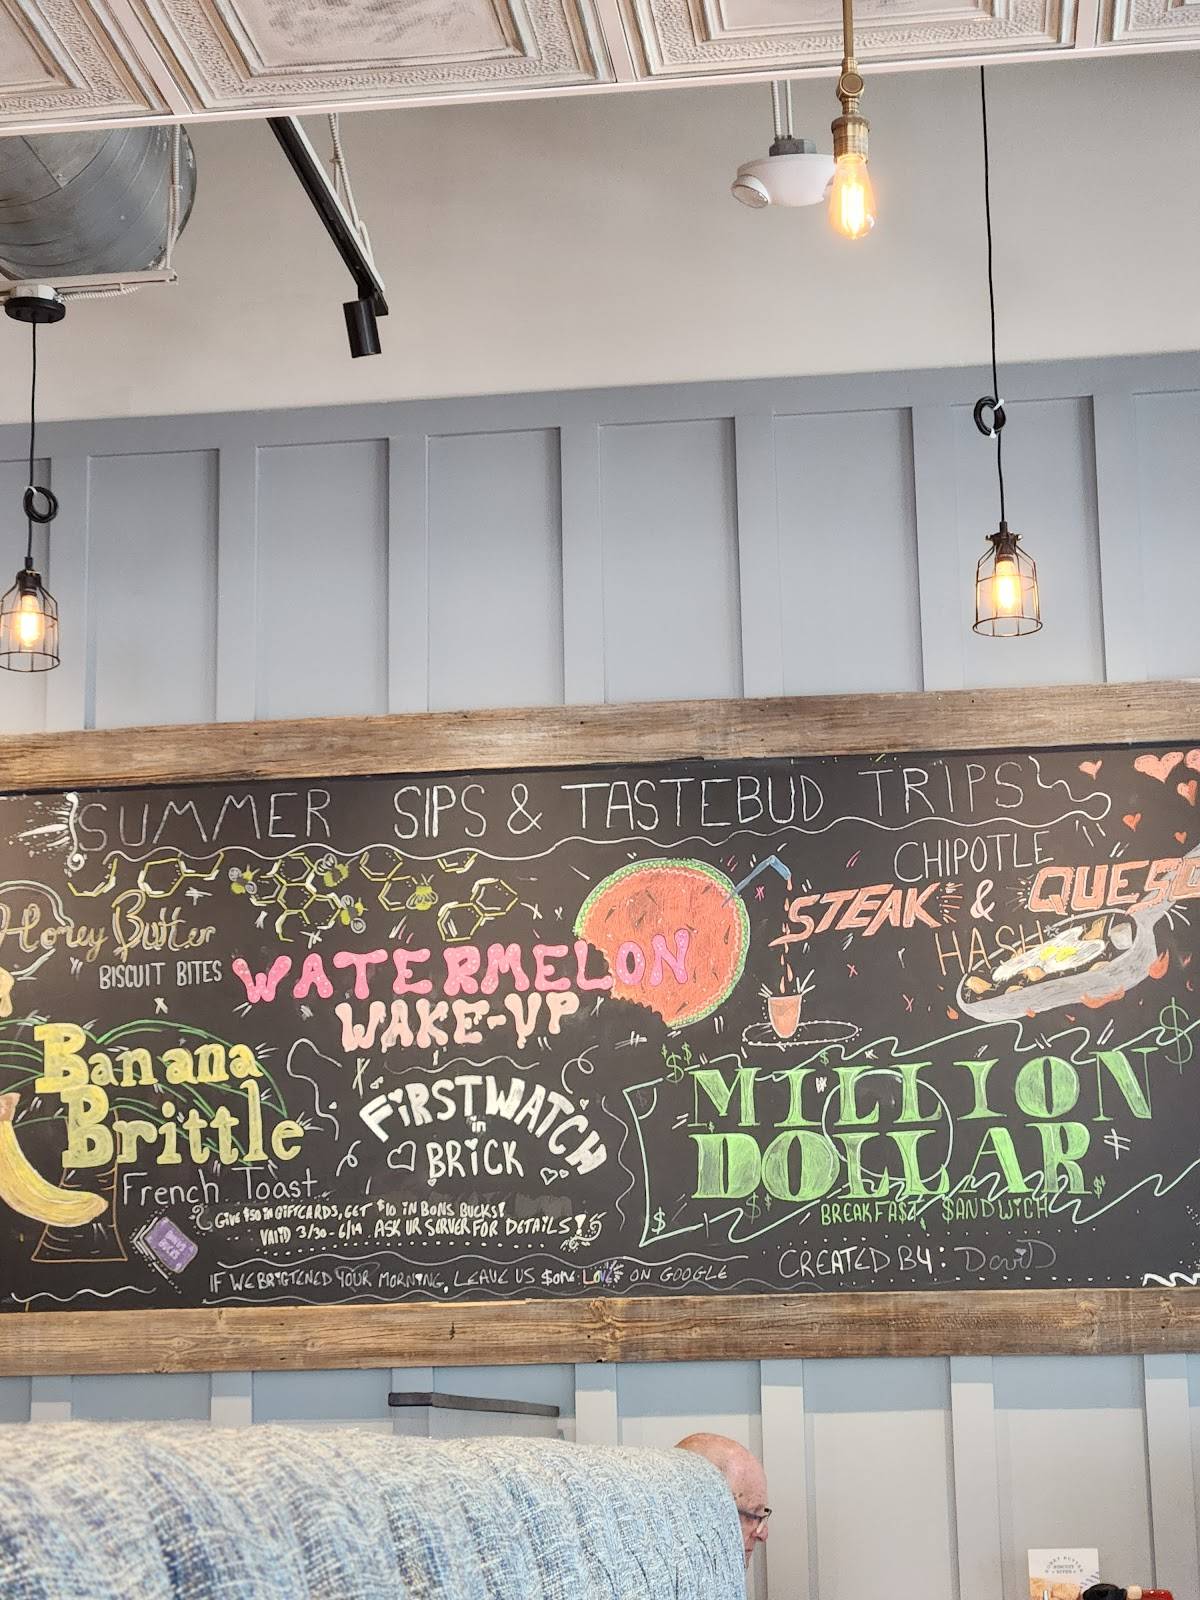 SUMMER SIPS & TASTEBUD TRIPS
Honey Butter
BISCUIT BITES
WATERMELON
WAKE-UP
CHIPOTLE
STEAK & QUESO
HASH
Banana
Brittle
French Toast
FIRSTWATCH
in
BRICK
MILLION
DOLLAR
BREAKFA$T $ANDWiCH
GIVE $50 IN GIFTCARDS, GET $10 IN BONS BUCKS!
VALID 3/30-6/14 ASK UR SERVER FOR DETAILS!
IF WE BRIGTENED YOUR MORNING, LEAVE US $OME LOVE ON GOOGLE
CREATED BY: DaviD
HONEY BUTTER
BISCUIT
BITES